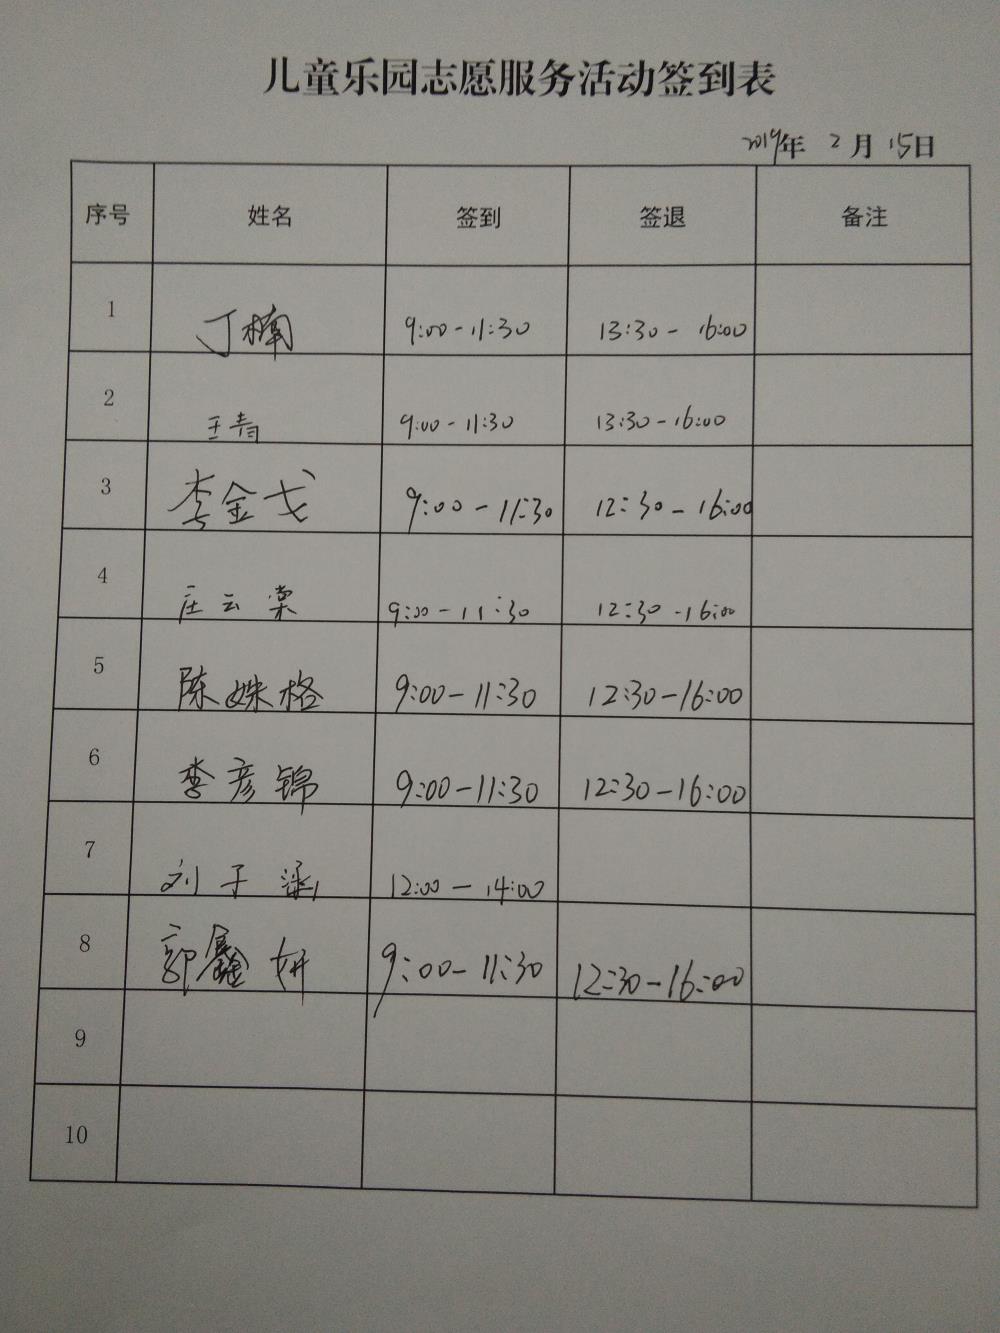 儿童乐园志愿服务活动签到表
2019年 2月 15日
序号 姓名 签到 签退 备注
1 丁楠 9:00-11:30 13:30-16:00
2 王青 9:00-11:30 13:30-16:00
3 李金戈 9:00-11:30 12:30-16:00
4 庄云棠 9:00-11:30 12:30-16:00
5 陈姝格 9:00-11:30 12:30-16:00
6 李彦锦 9:00-11:30 12:30-16:00
7 刘子涵 12:00-14:00
8 郭鑫妍 9:00-11:30 12:30-16:00
9
10